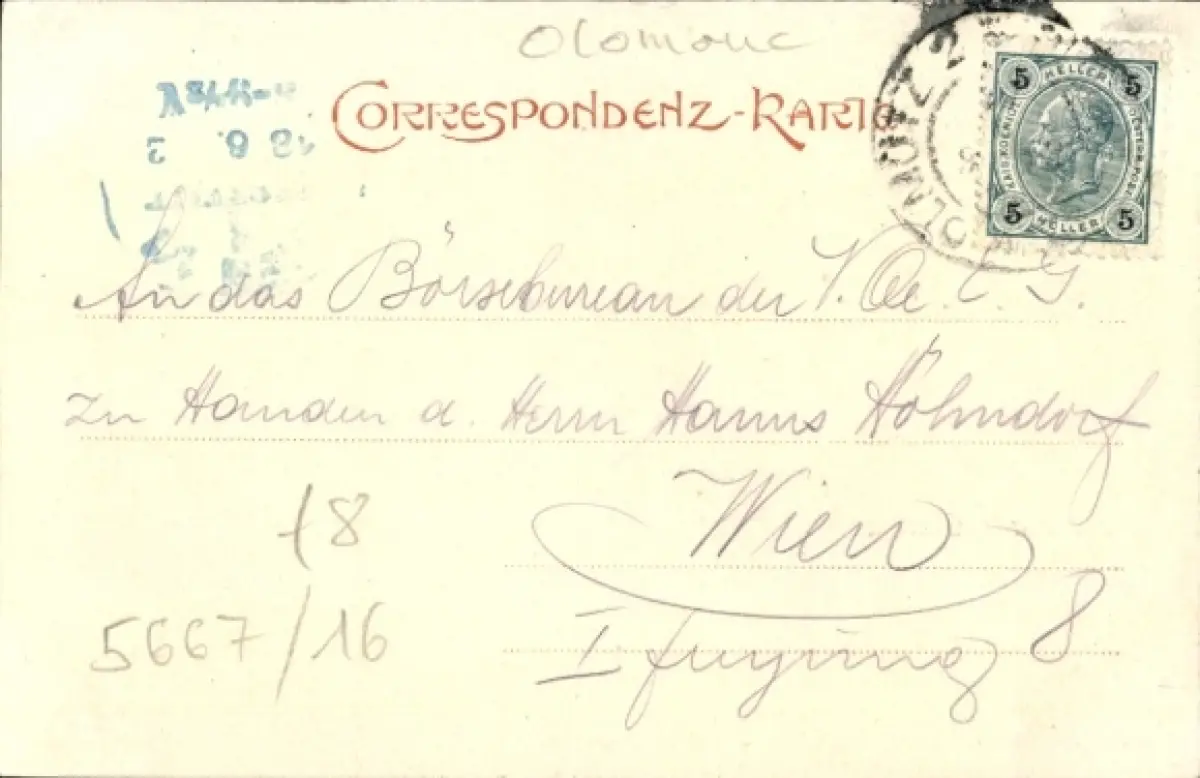 Olomouc
CORRESPONDENZ-KARTE
OLMÜTZ 2
5 HELLER 5
5 HELLER 5
An das Börsebureau der V. Oe. E. G.
zu Handen d. Herrn Hanns Höhndorf
Wien
I Freyung 8
18
5667/16